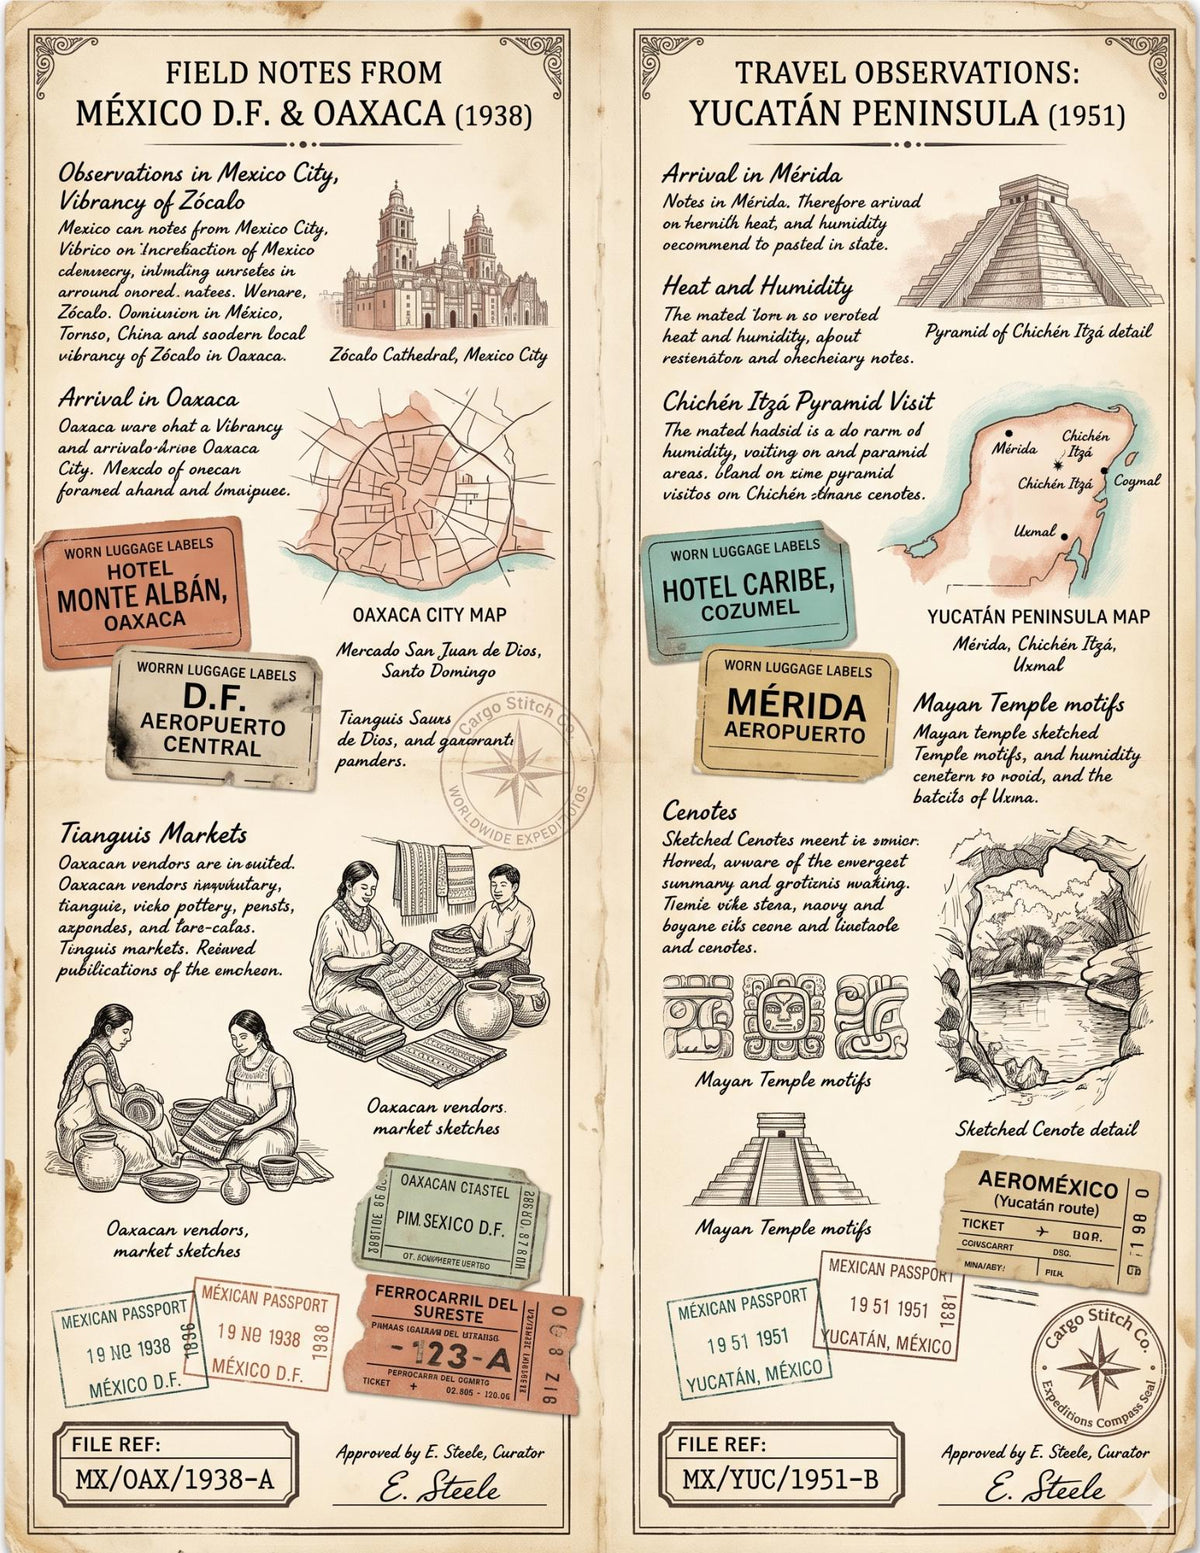 FIELD NOTES FROM
MÉXICO D.F. & OAXACA (1938)
Observations in Mexico City,
Vibrancy of Zócalo
Mexico can notes from Mexico City,
Vibrico on of Mexico
in
arround onored. natees. Wenare,
Zócalo. in México,
Tornso, China and saodern local
vibrancy of Zócalo in Oaxaca.
Zócalo Cathedral, Mexico City
Arrival in Oaxaca
Oaxaca ware ohat a Vibrancy
and Oaxaca
City. Mexcdo of onecan
foramed ahand and
OAXACA CITY MAP
Mercado San Juan de Dios,
Santo Domingo
Tianguis Saurs
de Dios, and
pamders.
WORN LUGGAGE LABELS
HOTEL
MONTE ALBÁN,
OAXACA
WORRN LUGGAGE LABELS
D.F.
AEROPUERTO
CENTRAL
Cargo Stitch Co.
WORLDWIDE
Tianguis Markets
Oaxacan vendors are in
Oaxacan vendors
tianguie, vicko pottery, pensts,
azpondes, and fare-calas.
Tinguis markets.
pubilications of the emcheon.
Oaxacan vendors.
market sketches
Oaxacan vendors,
market sketches
OAXACAN CIASTEL
PIM. SEXICO D.F.
FERROCARRIL DEL
SURESTE
-123-A
TICKET
MÉXICAN PASSPORT
19 NO 1938
MÉXICO D.F.
MÉXICAN PASSPORT
19 NO 1938
1938
MÉXICO D.F.
FILE REF:
MX/OAX/1938-A
Approved by E. Steele, Curator
E. Steele
TRAVEL OBSERVATIONS:
YUCATÁN PENINSULA (1951)
Arrival in Mérida
Notes in Mérida. Therefore arivad
on hernith heat, and humidity
oecommend to pasted in state.
Heat and Humidity
The mated n so veroted
heat and humidity, about
and notes.
Pyramid of Chichén Itzá detail
Chichén Itzá Pyramid Visit
The mated hadsid is a do rarm of
humidity, voiting on and paramid
areas. bland on pyramid
visitos om Chichén cenotes.
Mérida
Chichén
Itzá
Chichén Itzá
Coymal
Uxmal
YUCATÁN PENINSULA MAP
Mérida, Chichén Itzá,
Uxmal
WORN LUGGAGE LABELS
HOTEL CARIBE,
COZUMEL
WORN LUGGAGE LABELS
MÉRIDA
AEROPUERTO
Mayan Temple motifs
Mayan temple sketched
Temple motifs, and humidity
cenetern and the
of Uxma.
Cenotes
Sketched Cenotes meent
Horved, avware of the envergest
summary and
stena, naovy and
boyane ceone and
and cenotes.
Mayan Temple motifs
Sketched Cenote detail
Mayan Temple motifs
AEROMÉXICO
(Yucatán route)
TICKET
DSG.
MEXICAN PASSPORT
19 51 1951
YUCATÁN, MÉXICO
MÉXICAN PASSPORT
19 51 1951
YUCATÁN, MÉXICO
Cargo Stitch Co.
Expeditions Compass Seal
FILE REF:
MX/YUC/1951-B
Approved by E. Steele, Curator
E. Steele